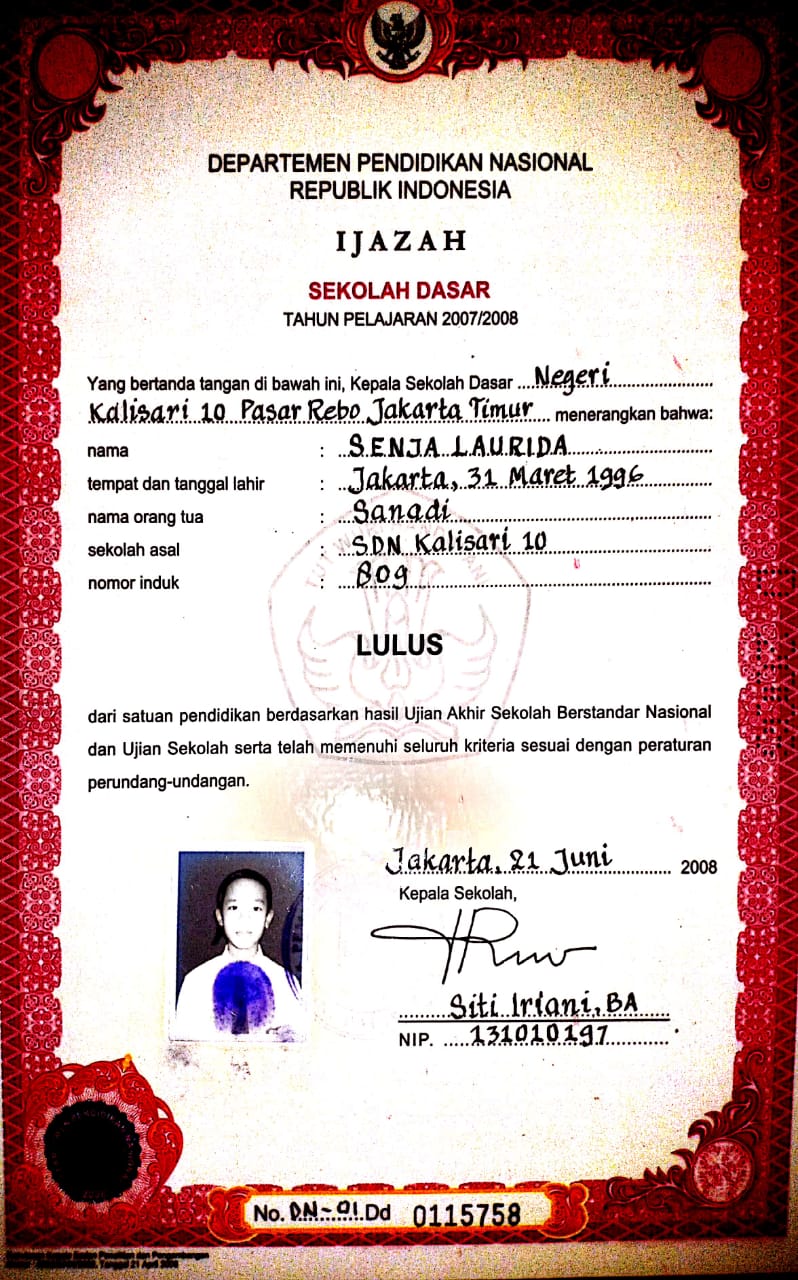 DEPARTEMEN PENDIDIKAN NASIONAL
REPUBLIK INDONESIA
IJAZAH
SEKOLAH DASAR
TAHUN PELAJARAN 2007/2008
Yang bertanda tangan di bawah ini, Kepala Sekolah Dasar ....Negeri
Kalisari 10 Pasar Rebo Jakarta Timur.... menerangkan bahwa:
nama : SENJA LAURIDA
tempat dan tanggal lahir : Jakarta, 31 Maret 1996
nama orang tua : Sanadi
sekolah asal : SDN Kalisari 10
nomor induk : 809
LULUS
dari satuan pendidikan berdasarkan hasil Ujian Akhir Sekolah Berstandar Nasional
dan Ujian Sekolah serta telah memenuhi seluruh kriteria sesuai dengan peraturan
perundang-undangan.
Jakarta, 21 Juni 2008
Kepala Sekolah,
Siti Iriani, BA
NIP. 131010197
No. DN-01 Dd 0115758